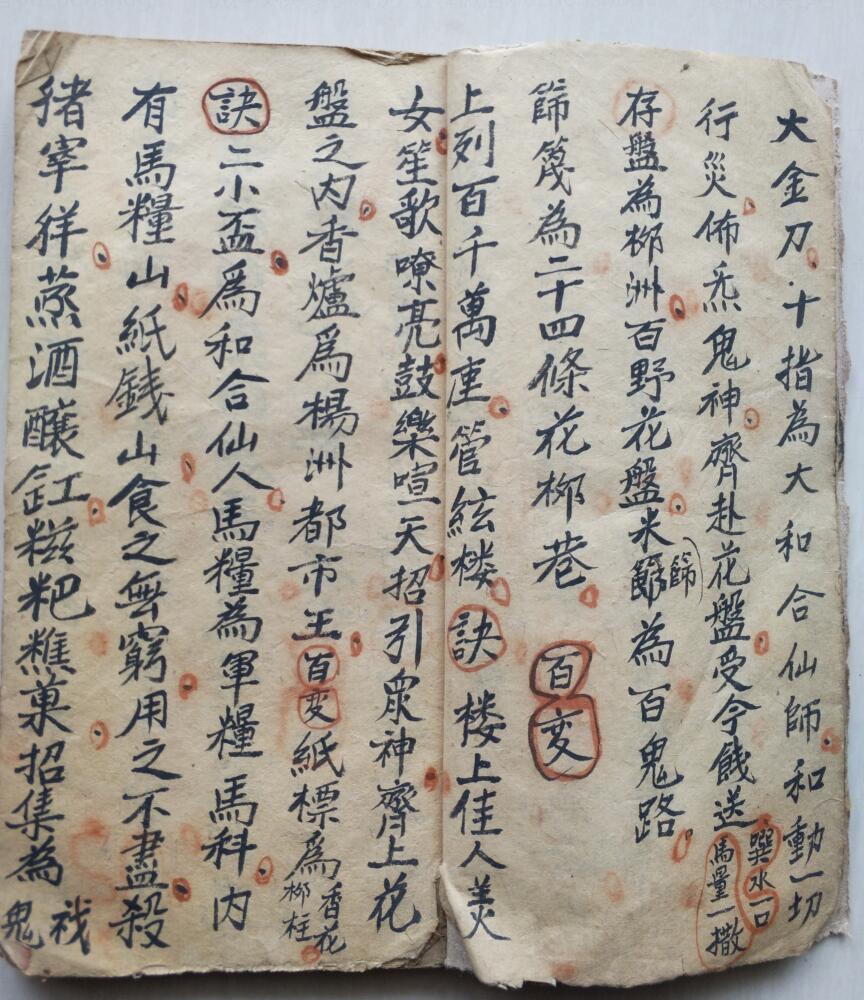 大金刀十指為大和合仙師和動一切
行災佈炁鬼神齊赴花盤受今餞送 噀水一口 馬量一撒
存盤為柳洲百野花盤米篩(篩)為百鬼路
篩篾為二十四條花柳巷 百变
上列百千萬座管絃楼 訣 楼上佳人美
女笙歌嘹亮鼓樂喧天招引眾神齊上花
盤之内香爐爲楊洲都市王 百变 紙標爲香花柳柱
訣 二小盃爲和合仙人馬糧為軍糧馬料内
有馬糧山紙錢山食之無窮用之不盡殺
猪宰羊蒸酒釀缸糍粑樵菓招集為